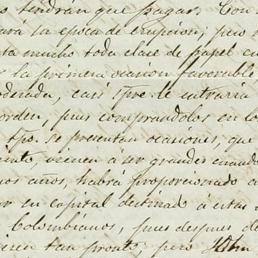 tendrán que pagar. Con
ará la época de erupcion; pero s
ta mucho toda clase de papel en
la primera ocasion favorable
oderada, casi spre le entraria
orden, pues comprandolos en lo
tpo. se presentan ocasiones, que
vienen a ser grandes cuando
nos años, habrá proporcionado a
ar un capital destinado a estas a
Colombianos, pues despues de
ieren tan pronto; pero